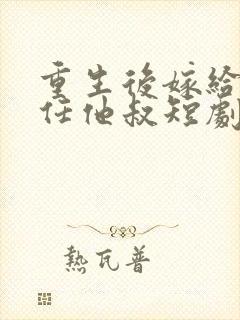 重生後嫁給
任他叔短劇
熱瓦普